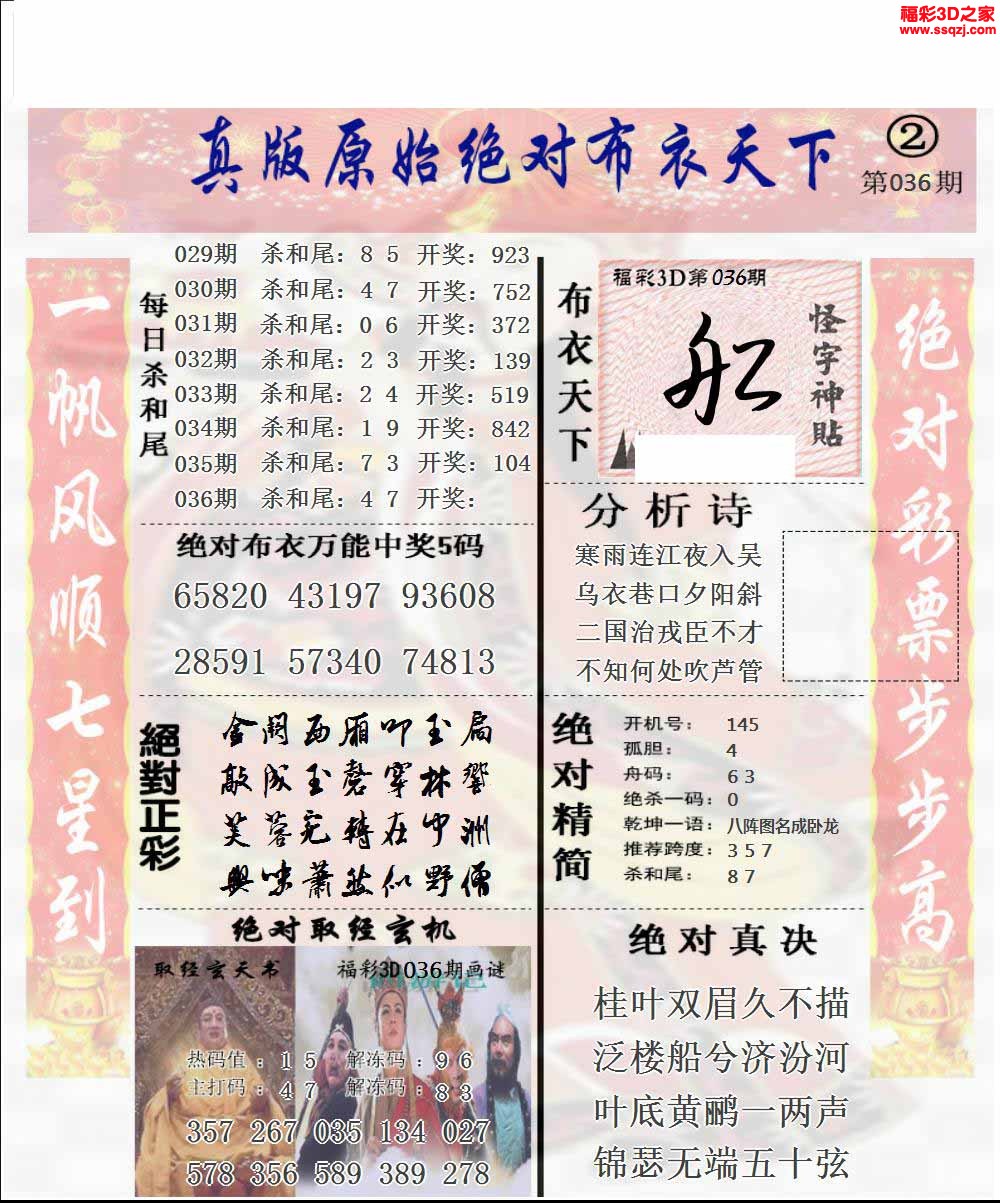 福彩3D之家
www.ssqzj.com
真版原始绝对布衣天下
②
第036期
一帆风顺七星到
每日杀和尾
029期 杀和尾：8 5 开奖：923
030期 杀和尾：4 7 开奖：752
031期 杀和尾：0 6 开奖：372
032期 杀和尾：2 3 开奖：139
033期 杀和尾：2 4 开奖：519
034期 杀和尾：1 9 开奖：842
035期 杀和尾：7 3 开奖：104
036期 杀和尾：4 7 开奖：
绝对布衣万能中奖5码
65820 43197 93608
28591 57340 74813
絕對正彩
金阙西厢叩玉扃
敲成玉磬穿林響
芙蓉宛轉在中洲
興味蕭然似野僧
绝对取经玄机
取经玄天书
福彩3D036期画谜
热码值：1 5 解冻码：9 6
主打码：4 7 解冻码：8 3
357 267 035 134 027
578 356 589 389 278
布衣天下
福彩3D第036期
船
怪字神贴
分析诗
寒雨连江夜入吴
乌衣巷口夕阳斜
二国治戎臣不才
不知何处吹芦管
绝对精简
开机号：145
孤胆：4
舟码：6 3
绝杀一码：0
乾坤一语：八阵图名成卧龙
推荐跨度：3 5 7
杀和尾：8 7
绝对真决
桂叶双眉久不描
泛楼船兮济汾河
叶底黄鹂一两声
锦瑟无端五十弦
绝对彩票步步高